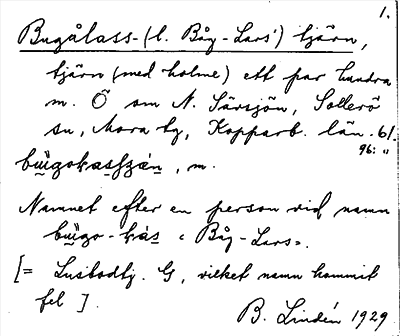 1.
Bugålass-(l. Båg-Lars') tjärn,
tjärn (med holme) ett par hundra
m. Ö om N. Särsjön, Sollerö
sn, Mora tg, Kopparb. län. 61.
96: "
m.
Namnet efter en person vid namn
"Båg-Lars".
[= Lusbodtj. G, vilket namn kommit
fel ].
B. Lindén 1929